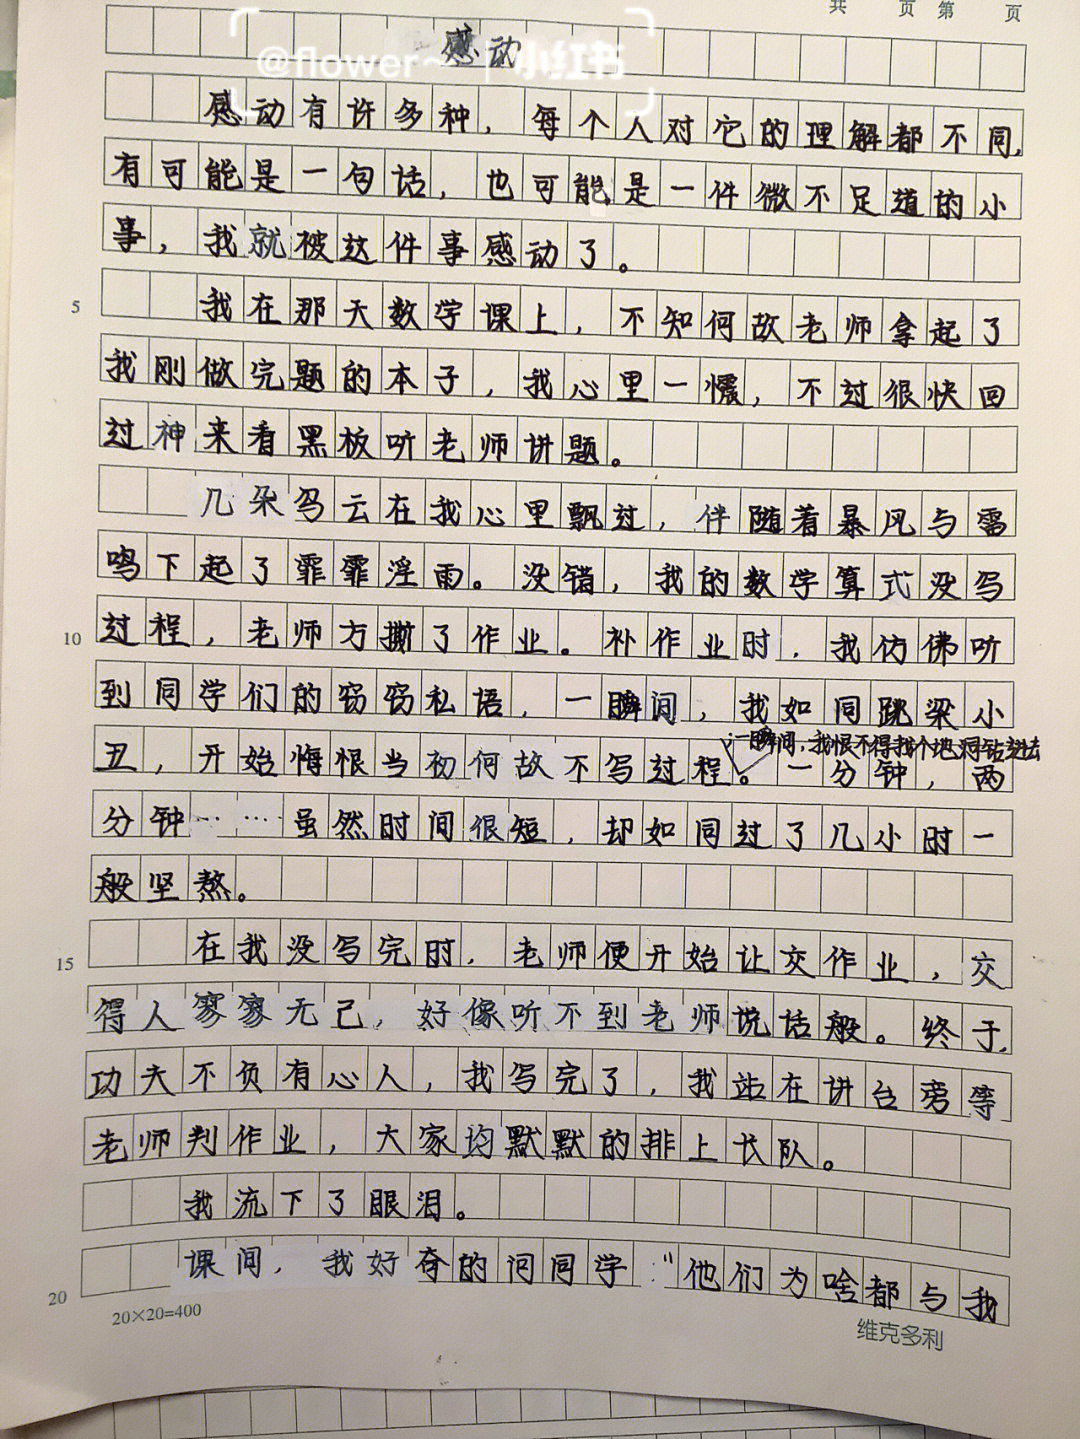 共 页 第 页
感动
@flower~ 小红书
感动有许多种，每个人对它的理解都不同，
有可能是一句话，也可能是一件微不足道的小
事，我就被这件事感动了。
5 我在那天数学课上，不知何故老师拿起了
我刚做完题的本子，我心里一慑，不过很快回
过神来看黑板听老师讲题。
几朵乌云在我心里飘过，伴随着暴风与雷
鸣下起了霏霏淫雨。没错，我的数学算式没写
10 过程，老师方撕了作业。补作业时，我仿佛听
到同学们的窃窃私语，一瞬间，我如同跳梁小
丑，开始悔恨当初何故不写过程。一分钟，两
一瞬间，我恨不得找个地洞钻进去
分钟……虽然时间很短，却如同过了几小时一
般坚熬。
15 在我没写完时，老师便开始让交作业，交
得人寥寥无己，好像听不到老师说话般。终于，
功夫不负有心人，我写完了，我站在讲台旁等
老师判作业，大家均默默的排上长队。
我流下了眼泪。
20 课间，我好奇的问同学："他们为啥都与我
20×20=400
维克多利